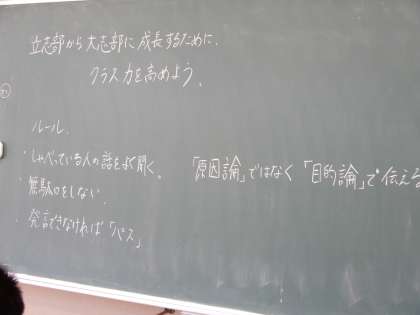 立志部から大志部に成長するために、
クラス力を高めよう。
ルール.
・しゃべっている人の話をよく聞く。
・無駄口をしない.
・発言できなければ「パス」
「原因論」ではなく「目的論」で伝える